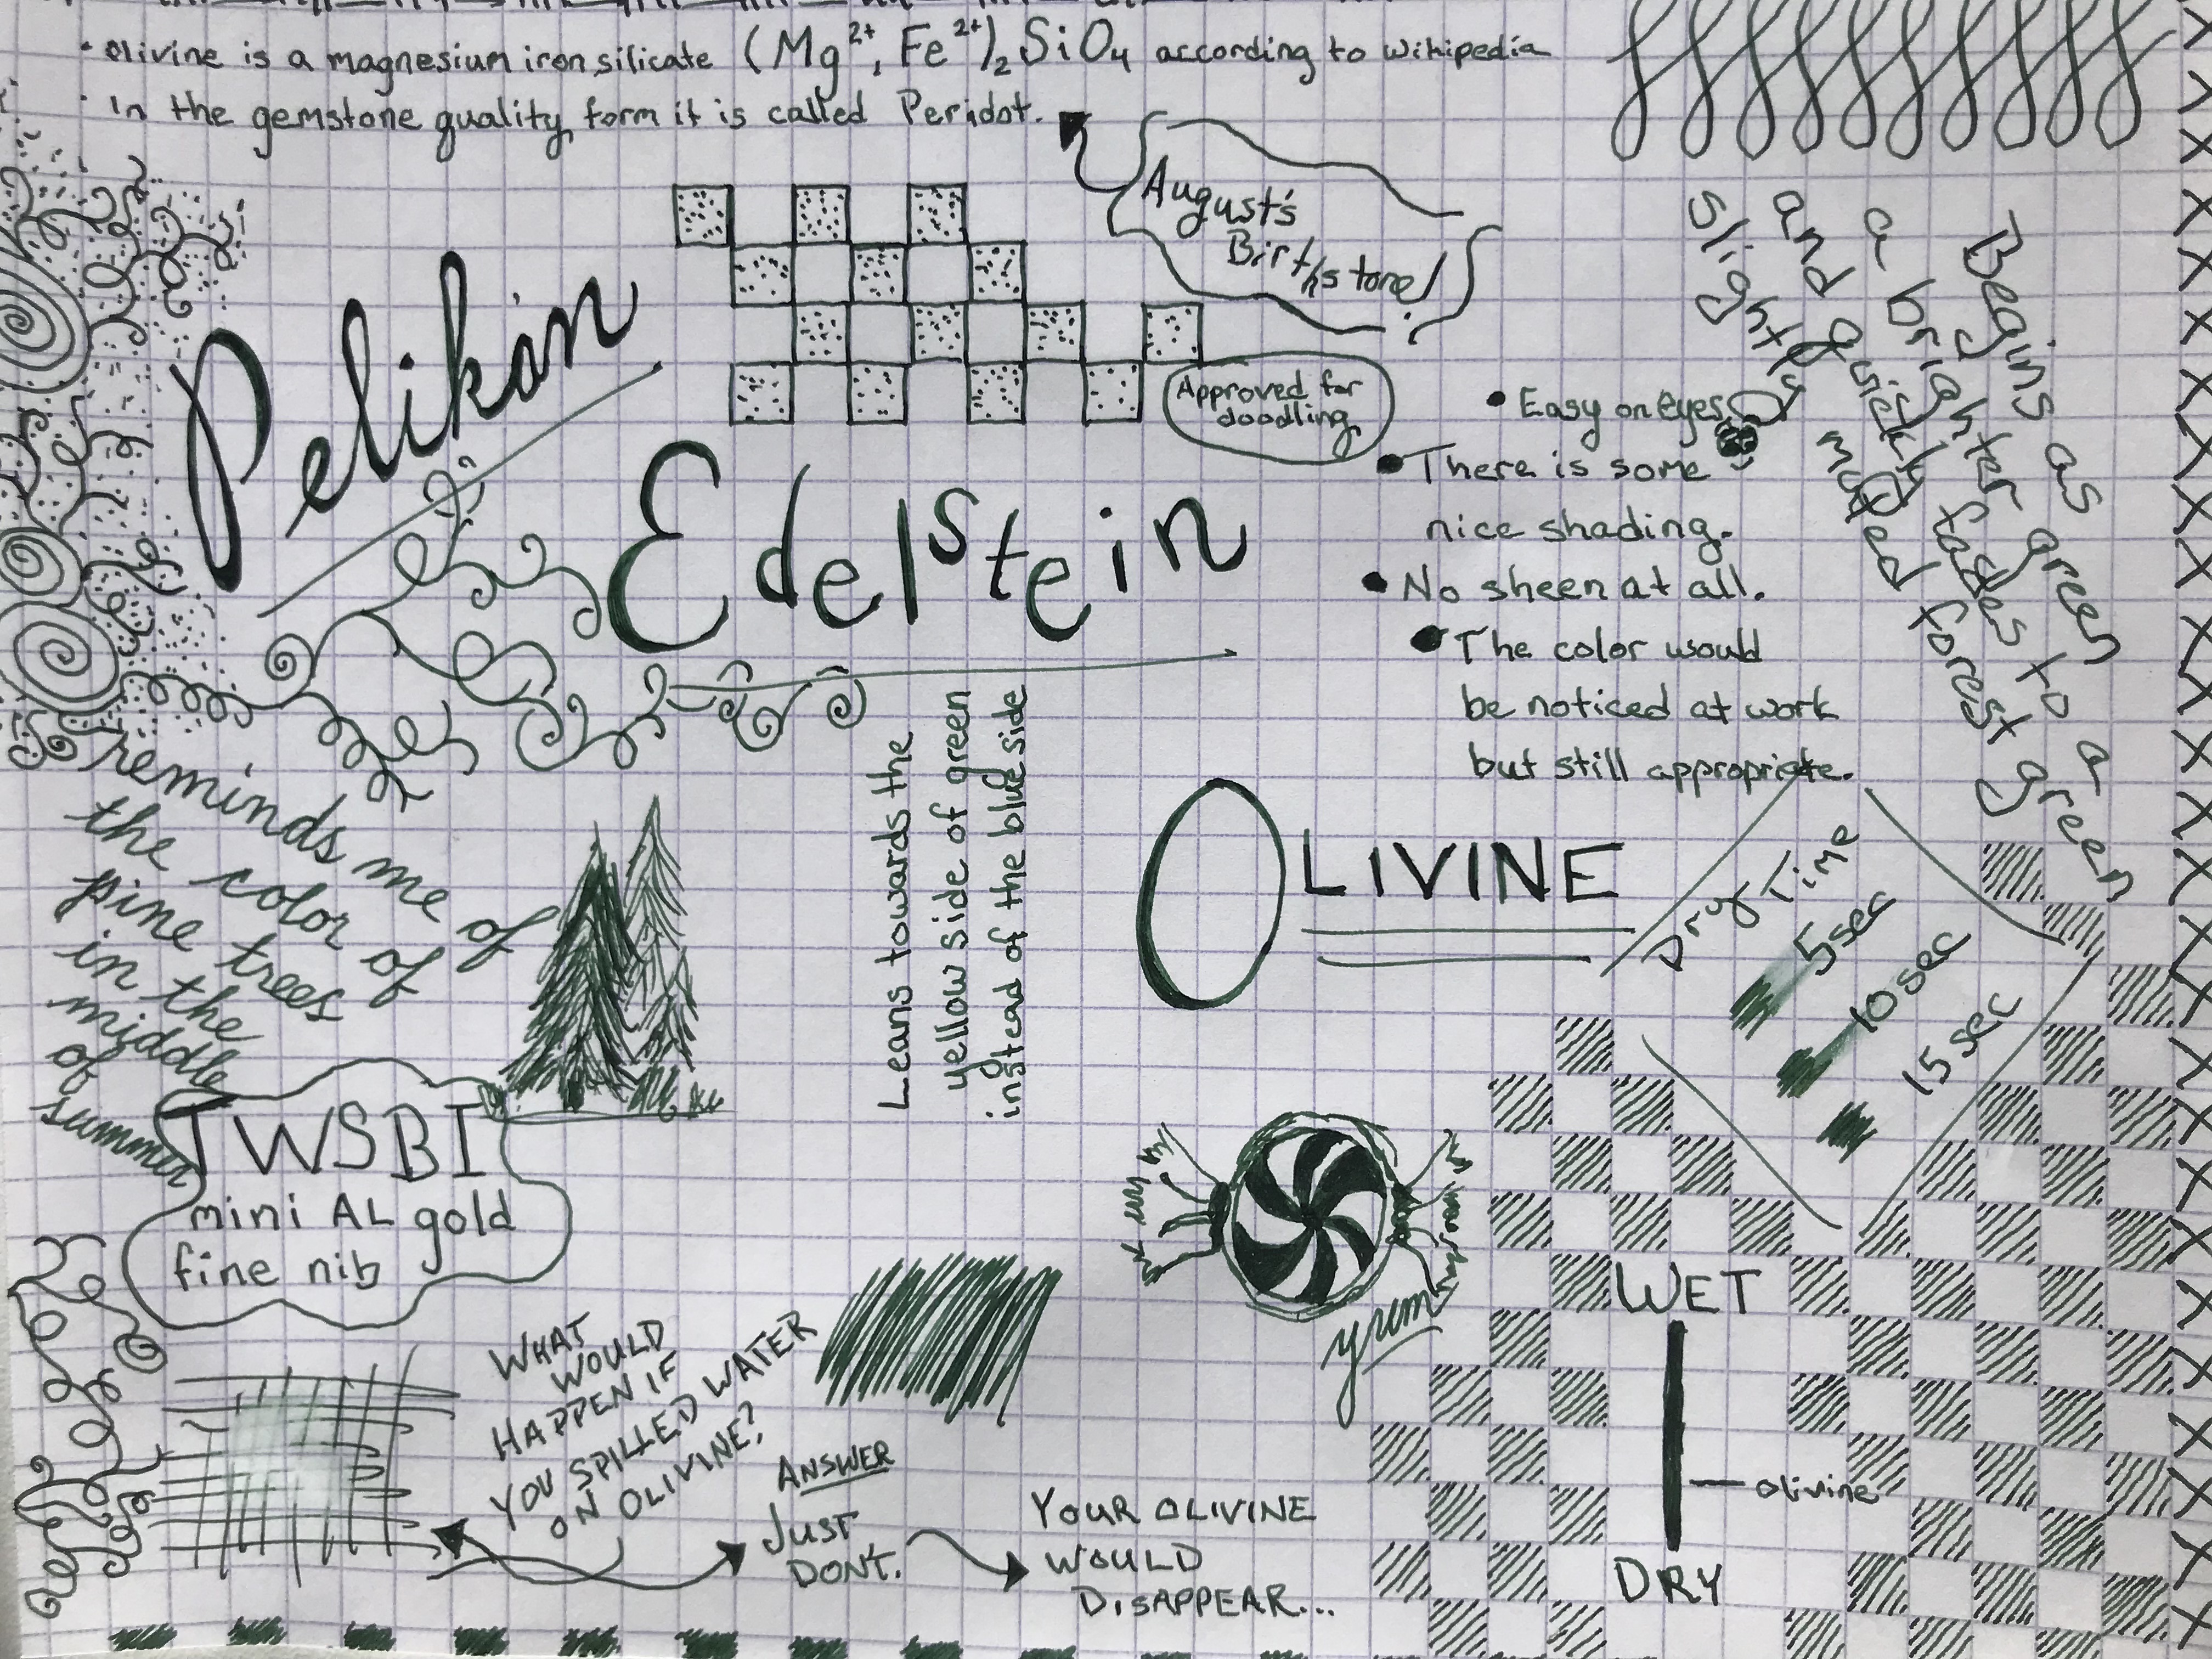 • Olivine is a magnesium iron silicate (Mg²⁺, Fe²⁺)₂SiO₄ according to wikipedia
• In the gemstone quality form it is called Peridot.
August's
Birthstone!
Pelikan
Approved for
doodling
Edelstein
• Easy on eyes
• There is some
nice shading.
• No sheen at all.
• The color would
be noticed at work
but still appropriate.
Begins as
a brighter green
and quickly fades to a
slightly muted forest green
reminds me of
the color of
pine trees
in the
middle
of
summer
Leans towards the
yellow side of green
instead of the blue side
OLIVINE
Dry Time
5sec
10sec
15sec
TWSBI
mini AL gold
fine nib
yum
WET
olivine
DRY
WHAT
WOULD
HAPPEN IF
YOU SPILLED WATER
ON OLIVINE?
ANSWER
JUST
DONT.
YOUR OLIVINE
WOULD
DISAPPEAR...